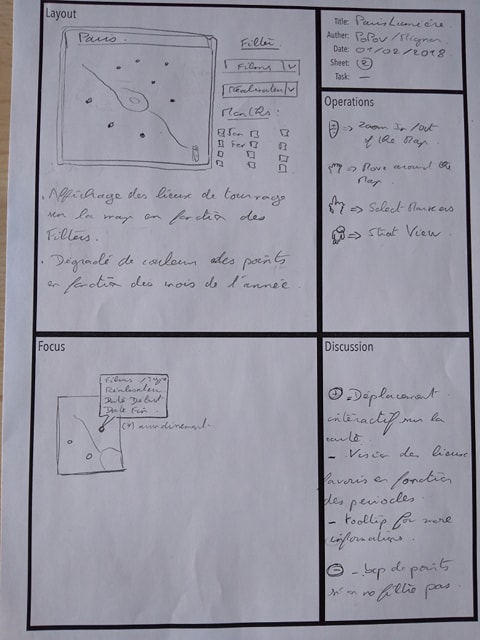 Layout
Paris
Filter
Films
Réalisateur
Months:
Jan
Fev
. Affichage des lieux de tournage
sur la map en fonction des
Filters.
. Dégradé de couleurs des points
en fonction des mois de l'année.
Title: ParisLumière
Auther: POPOV / Mignon
Date: 01/02/2018
Sheet: 2
Task: —
Operations
=> Zoom In/Out
of the Map.
=> Move around the
Map.
=> Select Markers
=> Street View.
Focus
Films / Type
Réalisateur
Date Début
Date Fin
(*) arrondissement
Discussion
+ - Déplacement
intéractif sur la
carte
- Vision des lieux
favoris en fonction
des periodes.
- tooltip for more
informations.
- - bcp de points
si on ne filtre pas.